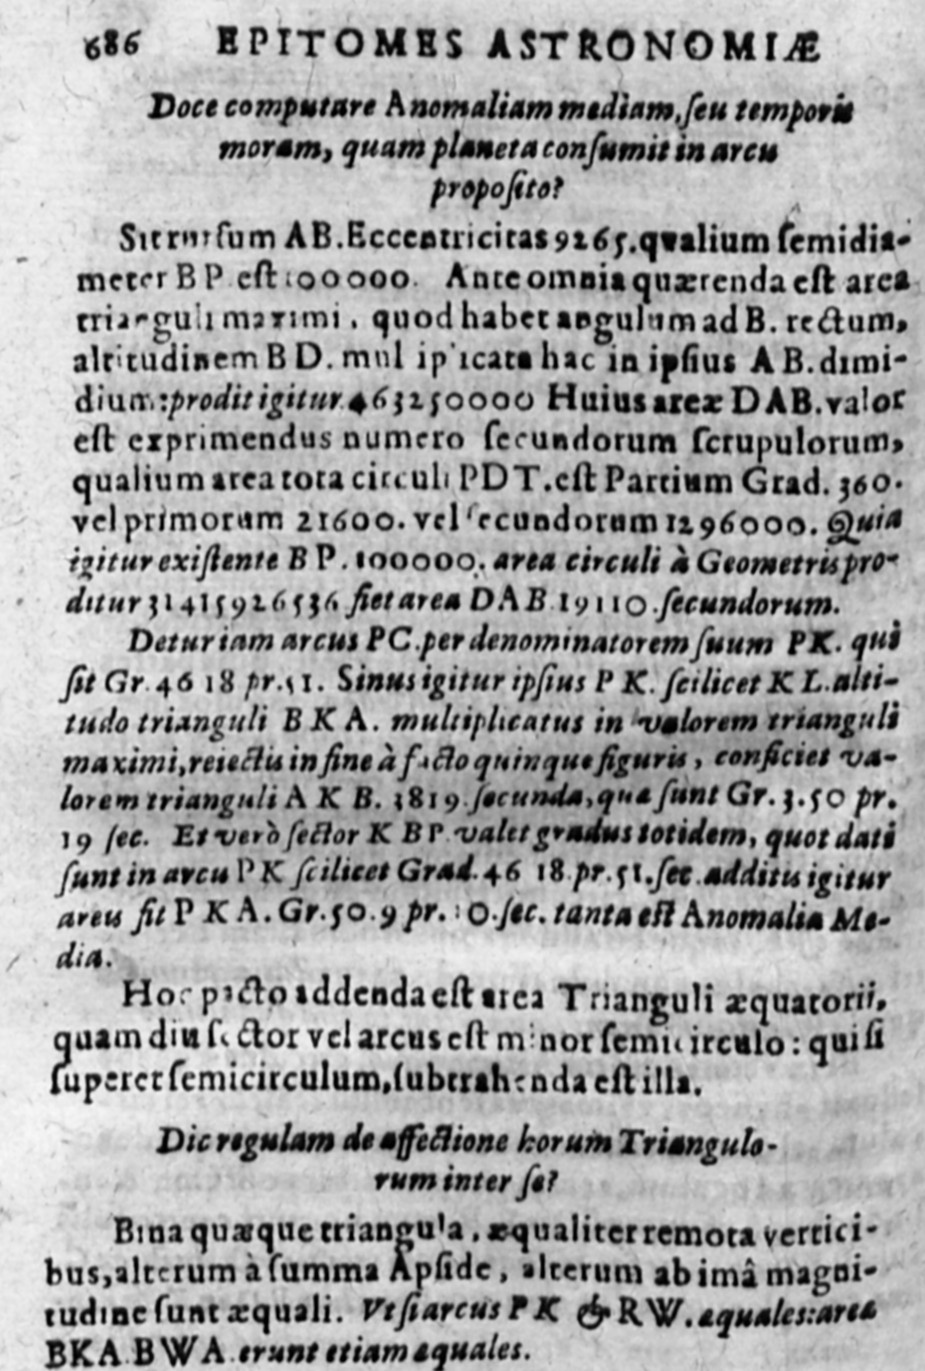 686 EPITOMES ASTRONOMIÆ
Doce computare Anomaliam mediam, ſeu temporis
moram, quam planeta conſumit in arcu
propoſito?
Sit rurſum AB. Eccentricitas 9265. qualium ſemidia-
meter BP eſt 100000. Ante omnia quærenda eſt area
trianguli maximi, quod habet angulum ad B. rectum,
altitudinem BD. multiplicata hac in ipſius AB. dimi-
dium: prodit igitur 463250000 Huius areæ DAB. valor
eſt exprimendus numero ſecundorum ſcrupulorum,
qualium area tota circuli PDT. eſt Partium Grad. 360.
vel primorum 21600. vel ſecundorum 1296000. Quia
igitur exiſtente BP. 100000. area circuli à Geometris pro-
ditur 31415926536 fiet area DAB 19110. ſecundorum.
Detur iam arcus PC. per denominatorem ſuum PK. qui
ſit Gr. 46 18 pr. 51. Sinus igitur ipſius PK. ſcilicet KL. alti-
tudo trianguli BKA. multiplicatus in valorem trianguli
maximi, reiectis in fine à facto quinque figuris, conficiet va-
lorem trianguli AKB. 3819. ſecunda, quæ ſunt Gr. 3. 50 pr.
19 ſec. Et verò ſector KBP valet gradus totidem, quot dati
ſunt in arcu PK ſcilicet Grad. 46 18. pr. 51. ſec. additis igitur
areis fit PKA. Gr. 50. 9 pr. 10. ſec. tanta eſt Anomalia Me-
dia.
Hoc pacto addenda eſt area Trianguli æquatorii,
quamdiu ſector vel arcus eſt minor ſemicirculo: qui ſi
ſuperet ſemicirculum, ſubtrahenda eſt illa.
Dic regulam de affectione horum Triangulo-
rum inter ſe?
Bina quæque triangula, æqualiter remota vertici-
bus, alterum à ſumma Apſide, alterum ab imâ magni-
tudine ſunt æquali. Vt ſi arcus PK & RW. æquales: area
BKA BWA erunt etiam æquales.